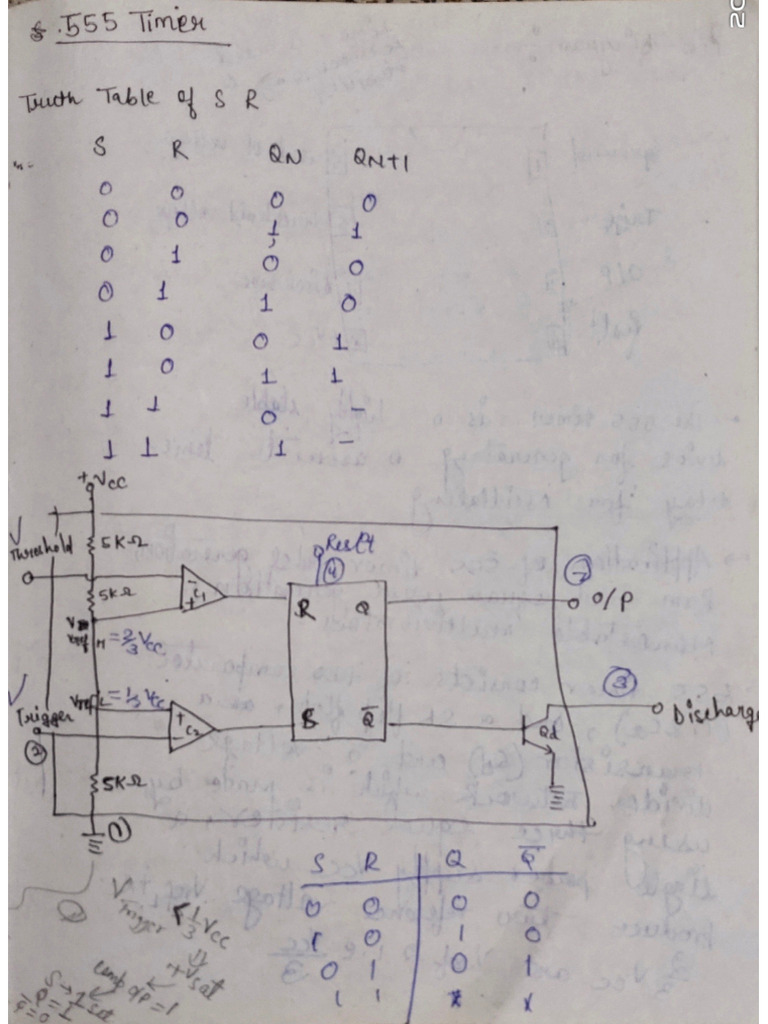 .555 Timer
Truth Table of S R
S R QN QN+1
0 0 0 0
0 0 1 1
0 1 0 0
0 1 1 0
1 0 0 1
1 0 1 1
1 1 0 -
1 1 1 -
+Vcc
5KΩ
Threshold
Reset
④
5KΩ
C1
R Q
O/P
= 2/3 Vcc
③
= 1/3 Vcc
Trigger
②
C2
S Q̅
Qd
Discharge
5KΩ
①
S R Q Q̅
0 0 0 0
1 0 1 0
0 1 0 1
1 1 x x
V Trigger < 1/3 Vcc
+Vsat
comp o/p = 1
S → 1 set
Q = 1
Q̅ = 0
20